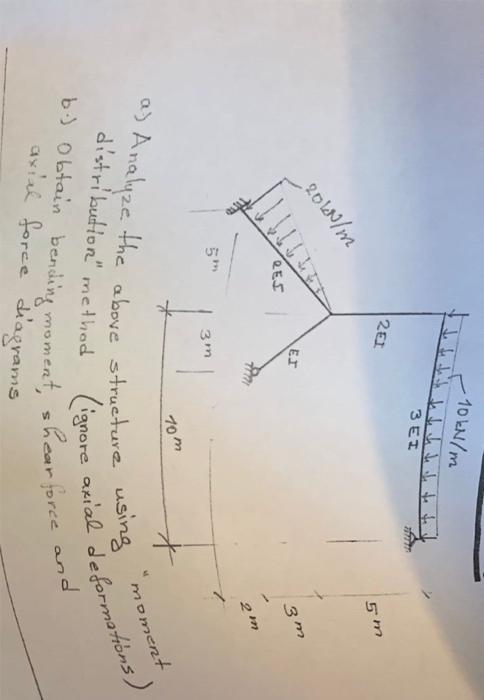 10 kN/m
3EI
2EI
20 kN/m
2EI
EI
5m
3m
2m
5m
3m
10m
a) Analyze the above structure using "moment
distribution" method (ignore axial deformations)
b.) Obtain bending moment, shear force and
axial force diagrams